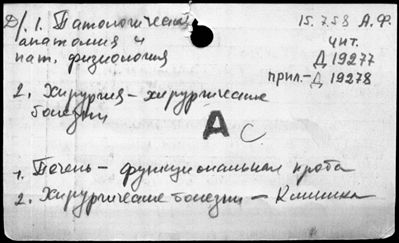 Д/. 1. Патологическая 15.7.58 А.Ф.
анатомия и чит.
пат. физиология Д 19277
прил.-Д 19278
2. Хирургия - хирургические
болезни
А С
1. Печень - функциональная проба
2. Хирургические болезни - Клиника